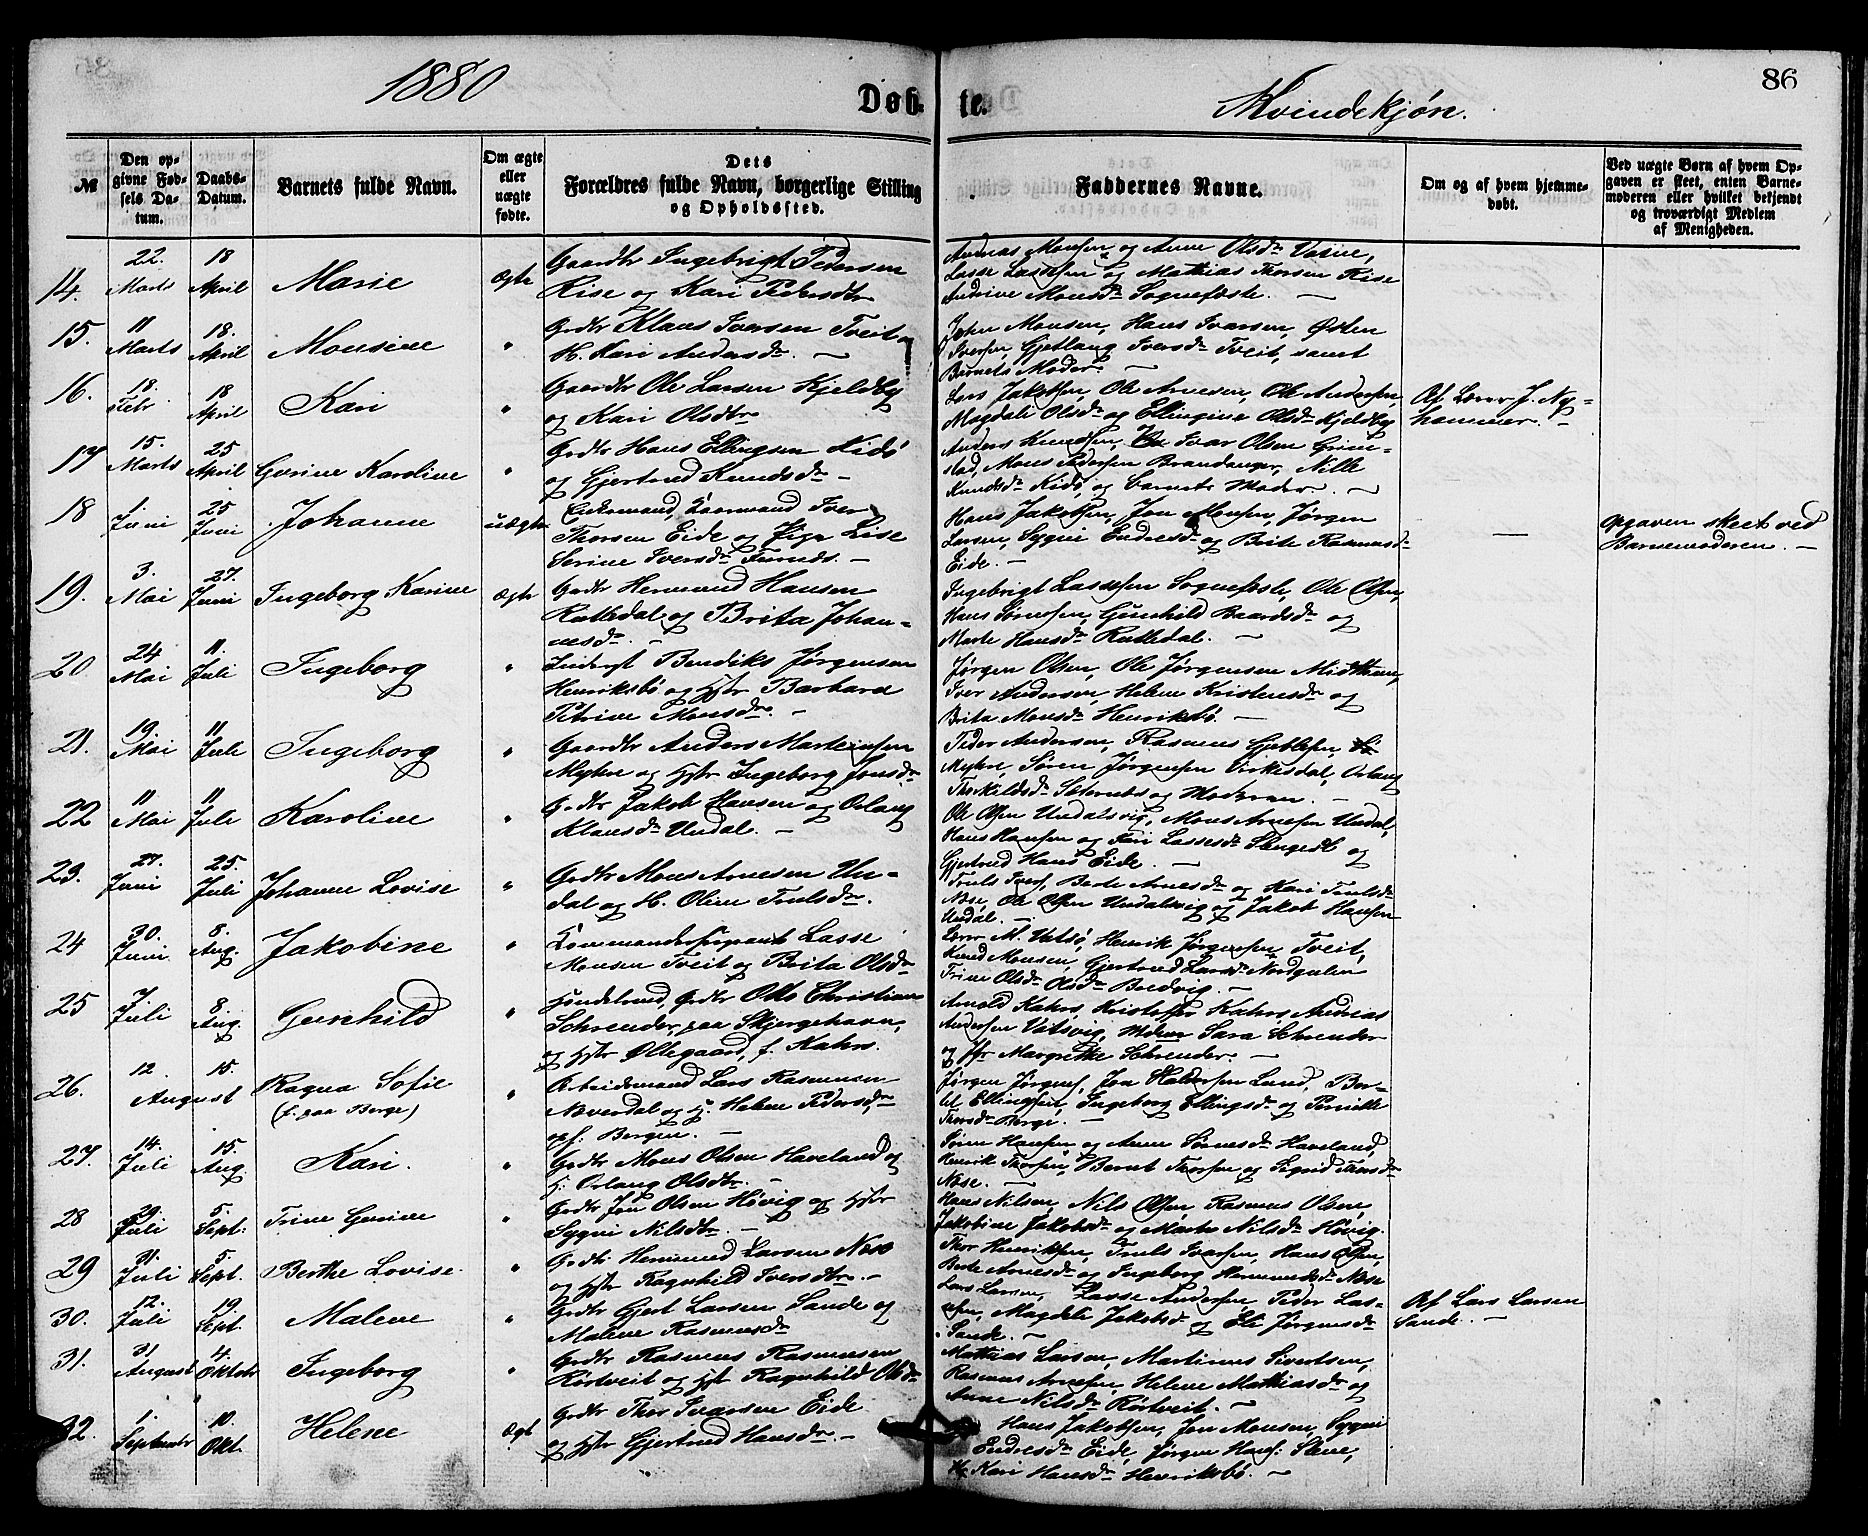 1880
Døb- te. Kvindekjøn. 86
№
Den opgivne Fødsels Datum.
Daabs-Datum.
Barnets fulde Navn.
Om ægte eller uægte fødte.
Dets
Forældres fulde Navn, borgerlige Stilling
og Opholdssted.
Faddernes Navne.
Om og af hvem hjemmedøbt.
Ved uægte Børn af hvem Opgaven er skeet, enten Barnemoderen eller hvilket bekjendt og troværdigt Medlem af Menigheden.
14. 22. Marts 18 April Marie Ægte
Gaardbr Ingebrigt Pedersen
Rise og Kari Pedersdtr
Andreas Monsen og Anne Olsdr
Lasse Lassesen og Mathias Thorsen Rise
Andrine Monsdr Sognefæste. —
15. 11 Marts 18. April Monsine "
Grdbr Klaus Iversen Tveit og
H. Kari Andersdr. —
John Monsen, Hans Ivarsen, Østen
Iversen, Gjetlaug Iversdr Tveit, samt
Barnets Moder. —
16. 18. Febr 18 April Kari "
Gaardbr Ole Larsen Kjeldby
og Kari Olsdtr
Lars Jakobsen, Ole Arnesen, Ole Andersen,
Magdali Olsdr og Ellingine Olsdr Kjeldby
Af Lærer J. Ny-
hammer. —
17 15. Marts 25 April Gurine Karoline "
Grdbr Hans Ellingsen Kidø
og Gjertrud Knudsdr —
Anders Knudsen, Ivar Olsen Grim-
stad, Mons Pedersen Brandanger, Nille
Knudsdr Kidø, og Barnets Moder. —
18 1 Juni 25 Juni Johanne uægte
Enkemand, Iver
Thorsen Eide og Pige Lise
Serine Iversdr
Hans Jakobsen, Jon Monsen, Jørgen
Larsen, Sygni Endresdr og Brite Rasmusdr
Eide. —
—
Opgaven skeet ved
Barnemoderen. —
19. 3. Mai 27. Juni Ingeborg Karine Ægte
Grdbr Hermund Hansen
Rutledal og Brita Johan-
nesdr. —
Ingebrigt Lassesen Sognefæste, Ole Olsen,
Hans Sørensen, Gunhild Baardsdr og
Marte Hansdr Rutledal. —
20. 24 Mai 11. Juli Ingeborg "
Bendiks Jørgensen
Henriksbø og Hstr Barbara
Petrine Monsdr. —
Jørgen Olsen, Ole Jørgensen Midttun,
Iver Andersen, Helene Kristensdr og
Brita Monsdr Henriksbø. —
21. 19. Mai 11. Juli Ingeborg "
Gaardbr Anders Martinsen
Myhre og Hstr Ingeborg Jonsdr
Peder Andersen, Rasmus Gjeblesen,
Myhre, Søren Jørgensen Virkesdal, Orlaug
Thorkildsdr og Moderen. —
22 11 Mai 11 Juli Karoline "
Grdbr Jakob Hansen og Orlaug
Klausdr Undal. —
Ole Olsen Undalsvig, Mons Arnesen Undal,
Hans Hansen og Kari Lassesdr og
Gjertrud Hans Eide. —
23. 27. Juni 25. Juli Johanne Lovise "
Grdbr Mons Arnesen Un-
dal og H. Oline Trulsdr.
Truls Ivers, Berte Arnesdr og Kari Trulsdr
Næse, Ole Olsen Undalsvig og Jakob Hansen
Undal. —
24 30. Juni 8. Aug. Jakobine "
Kommandersergeant Lasse
Monsen Tveit og Brita Olsdr
Lærer M. Vatsø, Henrik Jørgensen Tveit,
Knud Monsen, Gjertrud Larsdr Nordgulen
Trine Olsdr Olsdr Bredvig. —
25 7 Juli 8 Aug. Gunhild "
Handelsmd, Grdbr Otto Christian
Schreuder, paa Skjergehavn,
og Hstr Øllegaard, f. Kahrs.
Arnold Kahrs, Kristoffer Kahrs, Andreas
Andersen Vatsvig, Madam Sara Schreuder
og Margrethe Schreuder. —
26. 12. 15. August Ragna Sofie
(f. paa Berge) "
Arbeidsmand Lars Rasmusen
Nverdal og H. Helene Pedersdr,
opf. Bergen. —
Jørgen Jørgens, Jon Haldorsen Lund, Ber-
tel Ellingsen, Ingeborg Ellingsdr og Pernille
Thorsdr Berge. —
27. 14. Juli 15. Aug. Kari. "
Grdbr Mons Olsen Haveland og
H. Orlaug Olsdtr. —
Søren Hansen og Anne Sørnesdr Haveland,
Henrik Thorsen, Bernt Thorsen og Sigrid Thorsdr
Næse. —
28 29. Juli 5. Sept: Trine Gurine "
Grdbr Jon Olsen Høvig og Hstr
Sygni Nilsdtr. —
Hans Nilsen, Nils Olsen, Rasmus Olsen,
Jakobine Jakobsdr og Marte Nilsdr Høvig.
29 31. Juli 5 Sept. Berthe Lovise "
Grdbr. Hermund Larsen Næse
og Hstr Ragnhild Iversdtr. —
Thor Henriksen, Truls Ivarsen, Hans Olsen,
Berte Arnesdr og Ingeborg Hermundsdr Næse
30. 12. Juli 19. Sept. Malene "
Grdbr Gjert Larsen Sande og
Malene Rasmusdr
Lars Larsen, Lasse Andersen, Peder Las-
sesen, Magdeli Jakobsd og Eli Jørgensdr
Sande. —
Af Lars Larsen
Sande. —
31. 31 August 4. Oktobr Ingeborg "
Grdbr Rasmus Rasmusen
Rørtveit og Hstr Ragnhild Olsdr
Mathias Larsen, Martinus Sivertsen,
Rasmus Arnesen, Helene Mathiasdr og
Anne Nilsdr Rørtveit. —
32. 1. Septembr 10. Okt. Helene Ægt
Grdbr Thor Ivarsen Eide
og Hstr Gjertrud Hansdr. —
Hans Jakobsen, Jon Monsen, Sygni
Endresdr Eide, Jørgen Hans:
Kari Hansdr Henriksbø. —